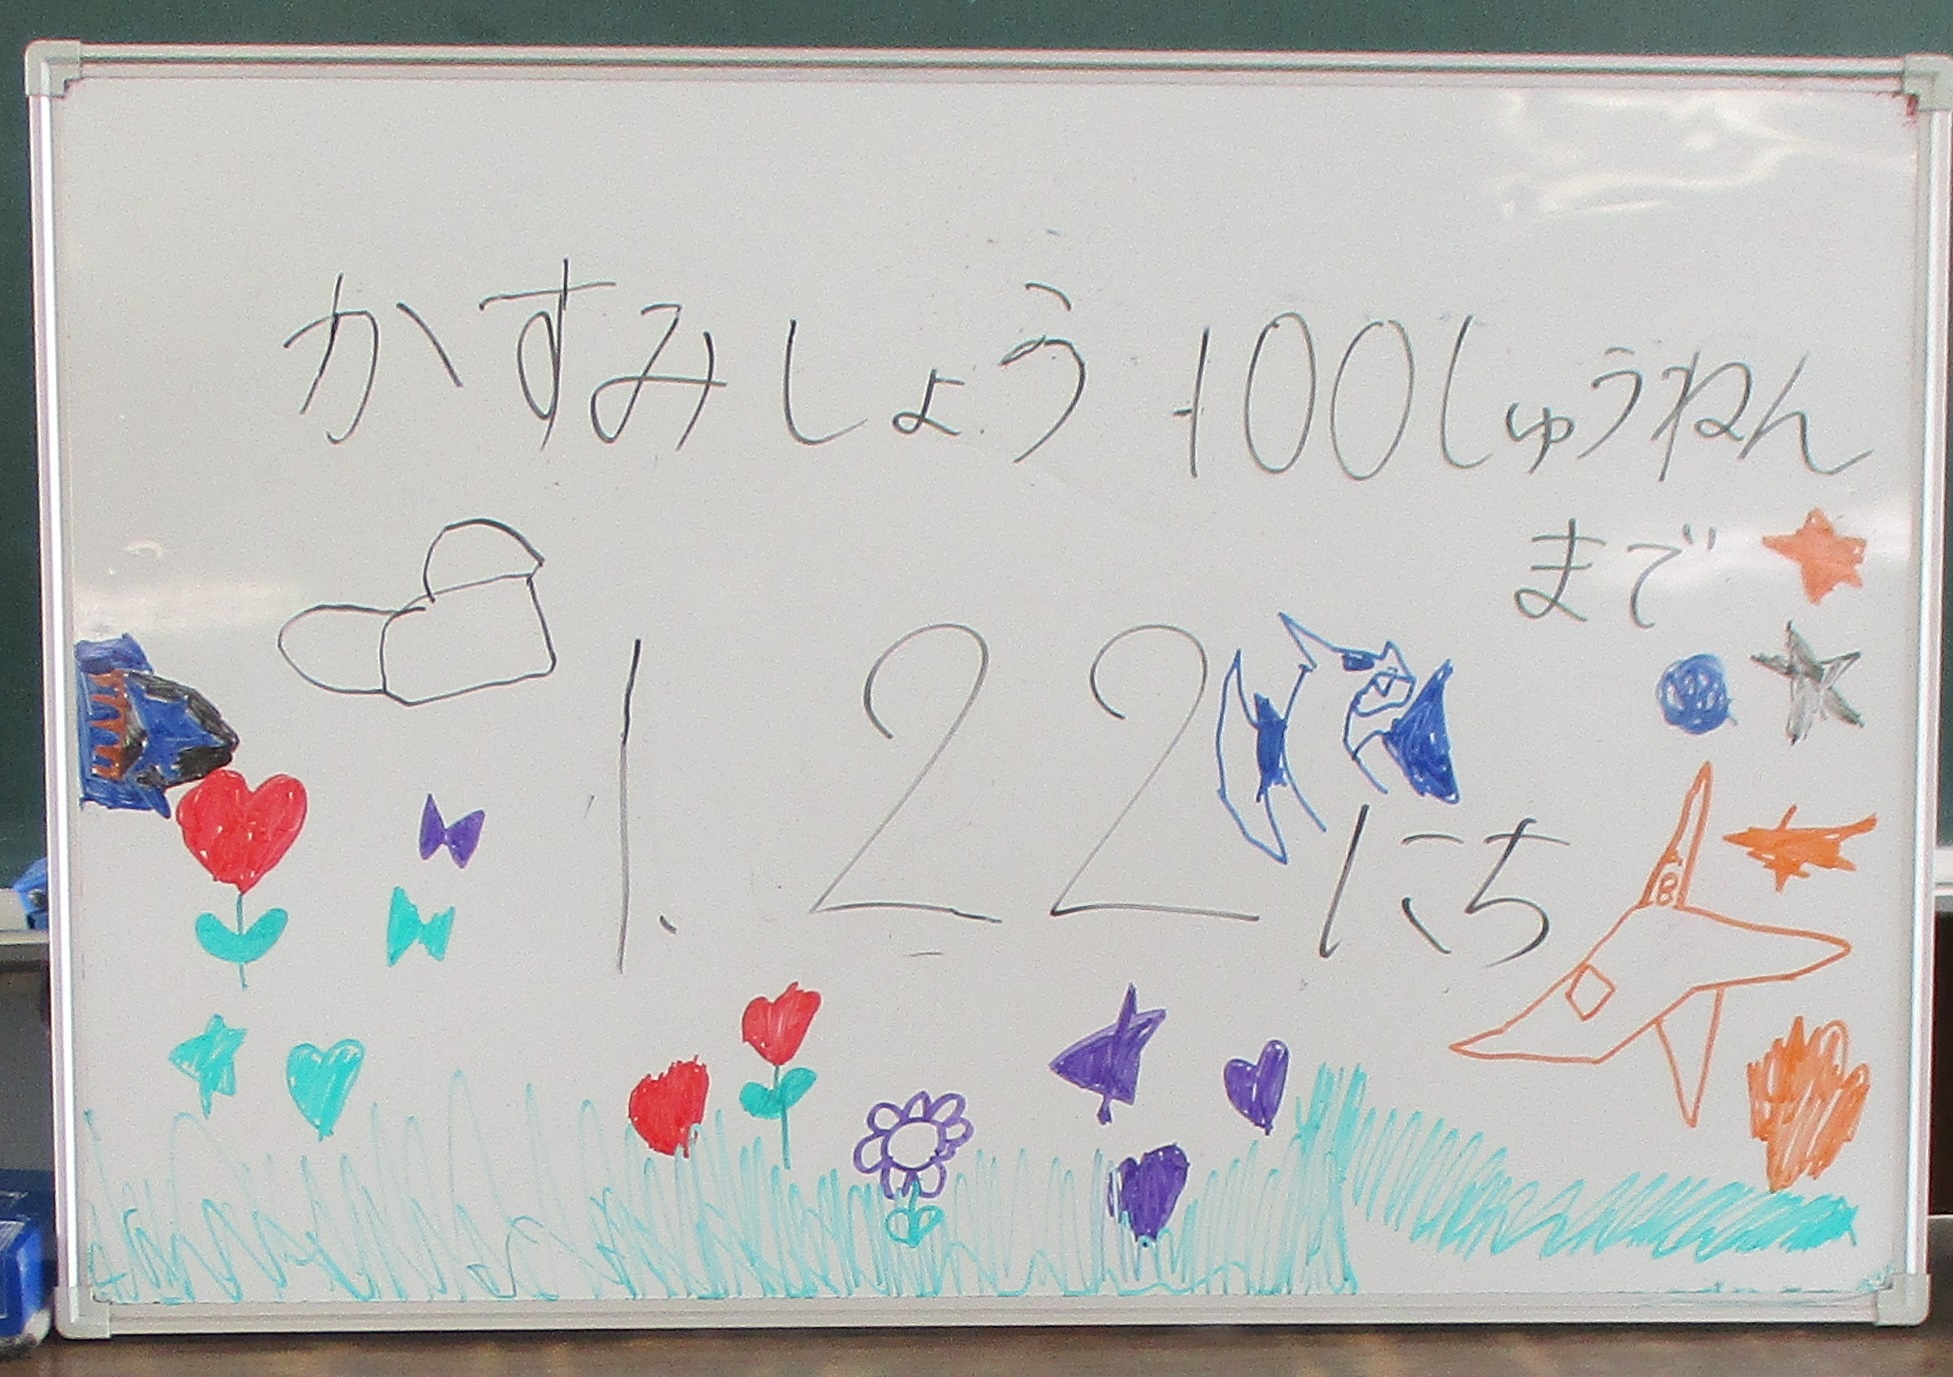 かすみしょう 100しゅうねん
まで
122にち
B